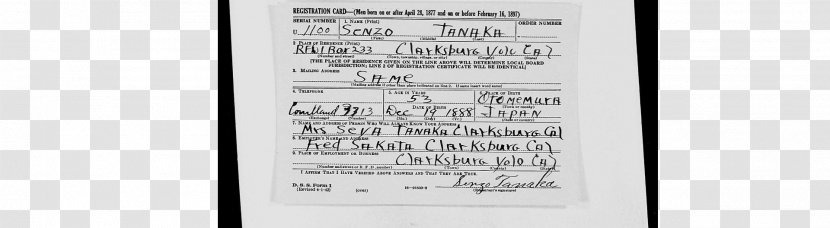 REGISTRATION CARD—(Men born on or after April 28, 1877 and on or before February 16, 1897)
SERIAL NUMBER 1. NAME (Print) ORDER NUMBER
U 1100 SENZO TANAKA
(First) (Middle) (Last)
2. PLACE OF RESIDENCE (Print)
RFD1 Box 233 Clarksburg Yolo Cal
(Number and street) (Town, township, village, or city) (County) (State)
[THE PLACE OF RESIDENCE GIVEN ON THE LINE ABOVE WILL DETERMINE LOCAL BOARD
JURISDICTION; LINE 2 OF REGISTRATION CERTIFICATE WILL BE IDENTICAL]
3. MAILING ADDRESS
SAME
[Mailing address if other than place indicated on line 2. If same insert word same]
4. TELEPHONE 5. AGE IN YEARS 6. PLACE OF BIRTH
53 Otomemura
DATE OF BIRTH (Town or county)
Courtland 3713 Dec 19 1888 JAPAN
(Exchange) (Number) (Mo.) (Day) (Yr.) (State or country)
7. NAME AND ADDRESS OF PERSON WHO WILL ALWAYS KNOW YOUR ADDRESS
Mrs SEVA TANAKA Clarksburg Cal
8. EMPLOYER'S NAME AND ADDRESS
Fred SAKATA Clarksburg Cal
9. PLACE OF EMPLOYMENT OR BUSINESS
Clarksburg Yolo Cal
(Number and street or R. F. D. number) (Town) (County) (State)
I AFFIRM THAT I HAVE VERIFIED ABOVE ANSWERS AND THAT THEY ARE TRUE.
D. S. S. Form 1 Senzo Tanaka
(Revised 4-1-42) (over) (Registrant's signature)